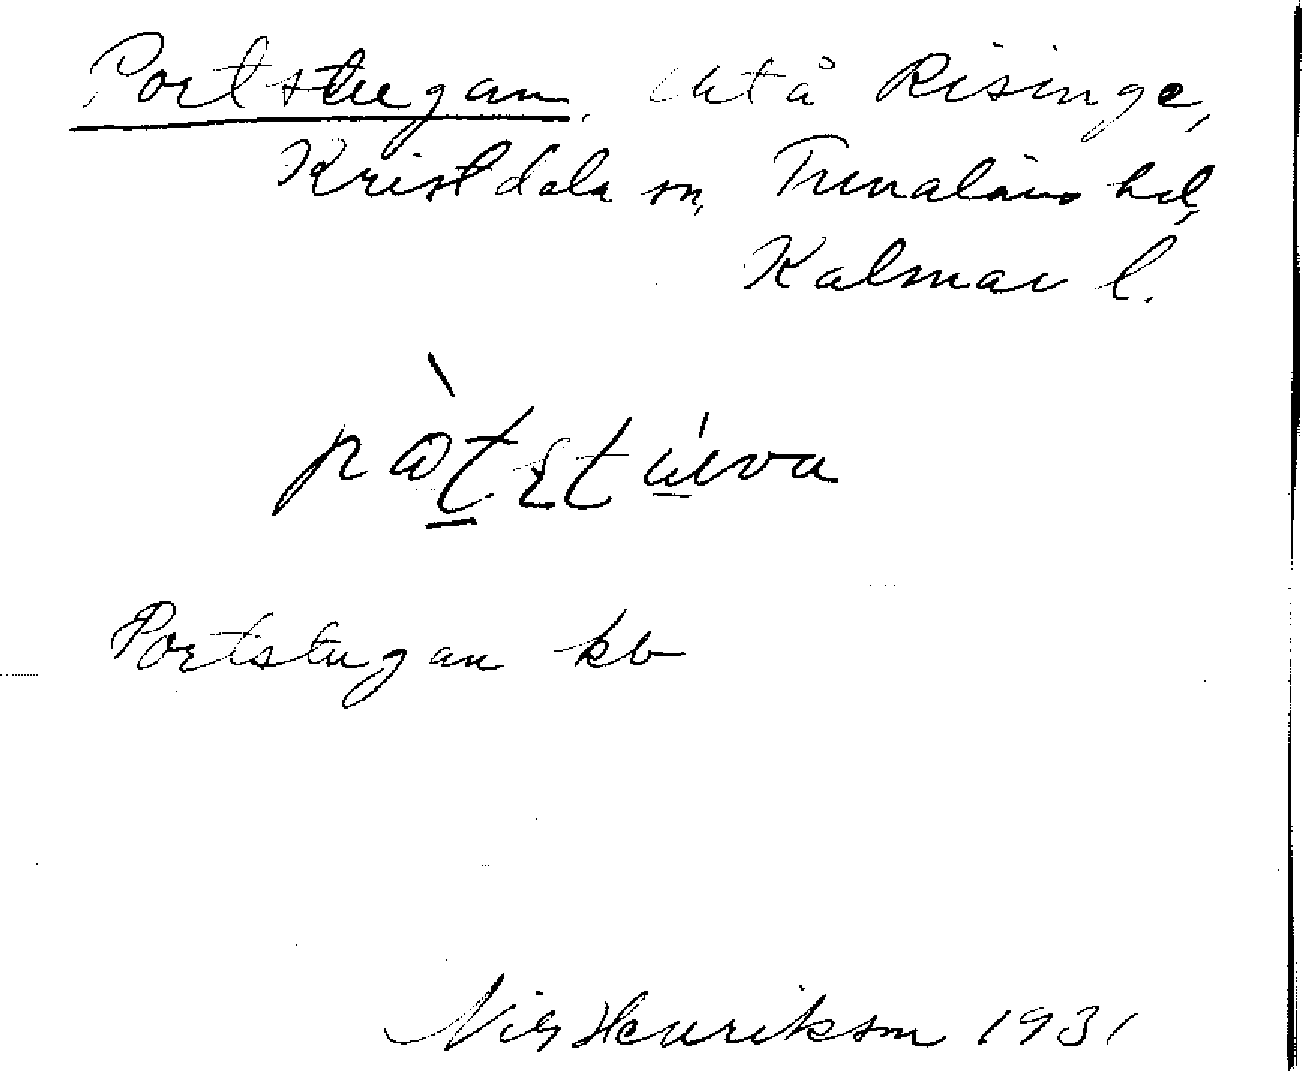 Portstugan, utå Risinge,
Kristdala sn, Tunaläns hd,
Kalmar l.
Portstugan kb
Nils Henrikson 1931